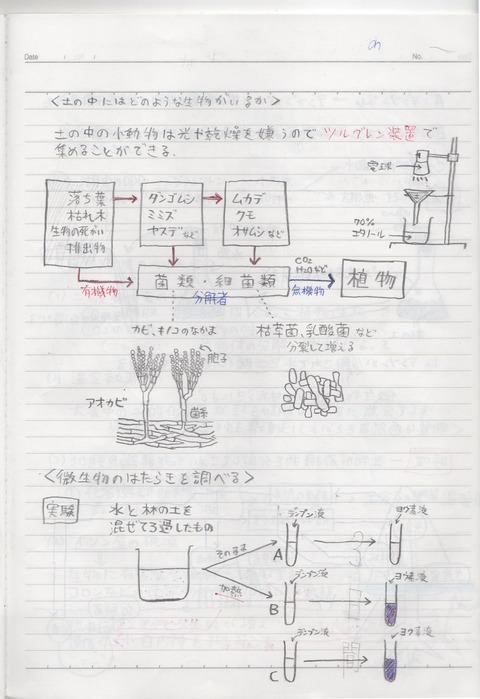 Date
No.
<土の中にはどのような生物がいるか>
土の中の小動物は光や乾燥を嫌うのでツルグレン装置で
集めることができる.
電球
70%
エタノール
落ち葉
枯れ木
生物の死がい
排出物
ダンゴムシ
ミミズ
ヤスデなど
ムカデ
クモ
オサムシなど
有機物
菌類・細菌類
分解者
CO2
H2Oなど
無機物
植物
カビ、キノコのなかま
枯草菌、乳酸菌など
分裂して増える
胞子
アオカビ
菌糸
<微生物のはたらきを調べる>
実験
水と林の土を
混ぜてろ過したもの
そのまま
加熱
デンプン液
ヨウ素液
A
3
デンプン液
ヨウ素液
B
日
デンプン液
ヨウ素液
C
間